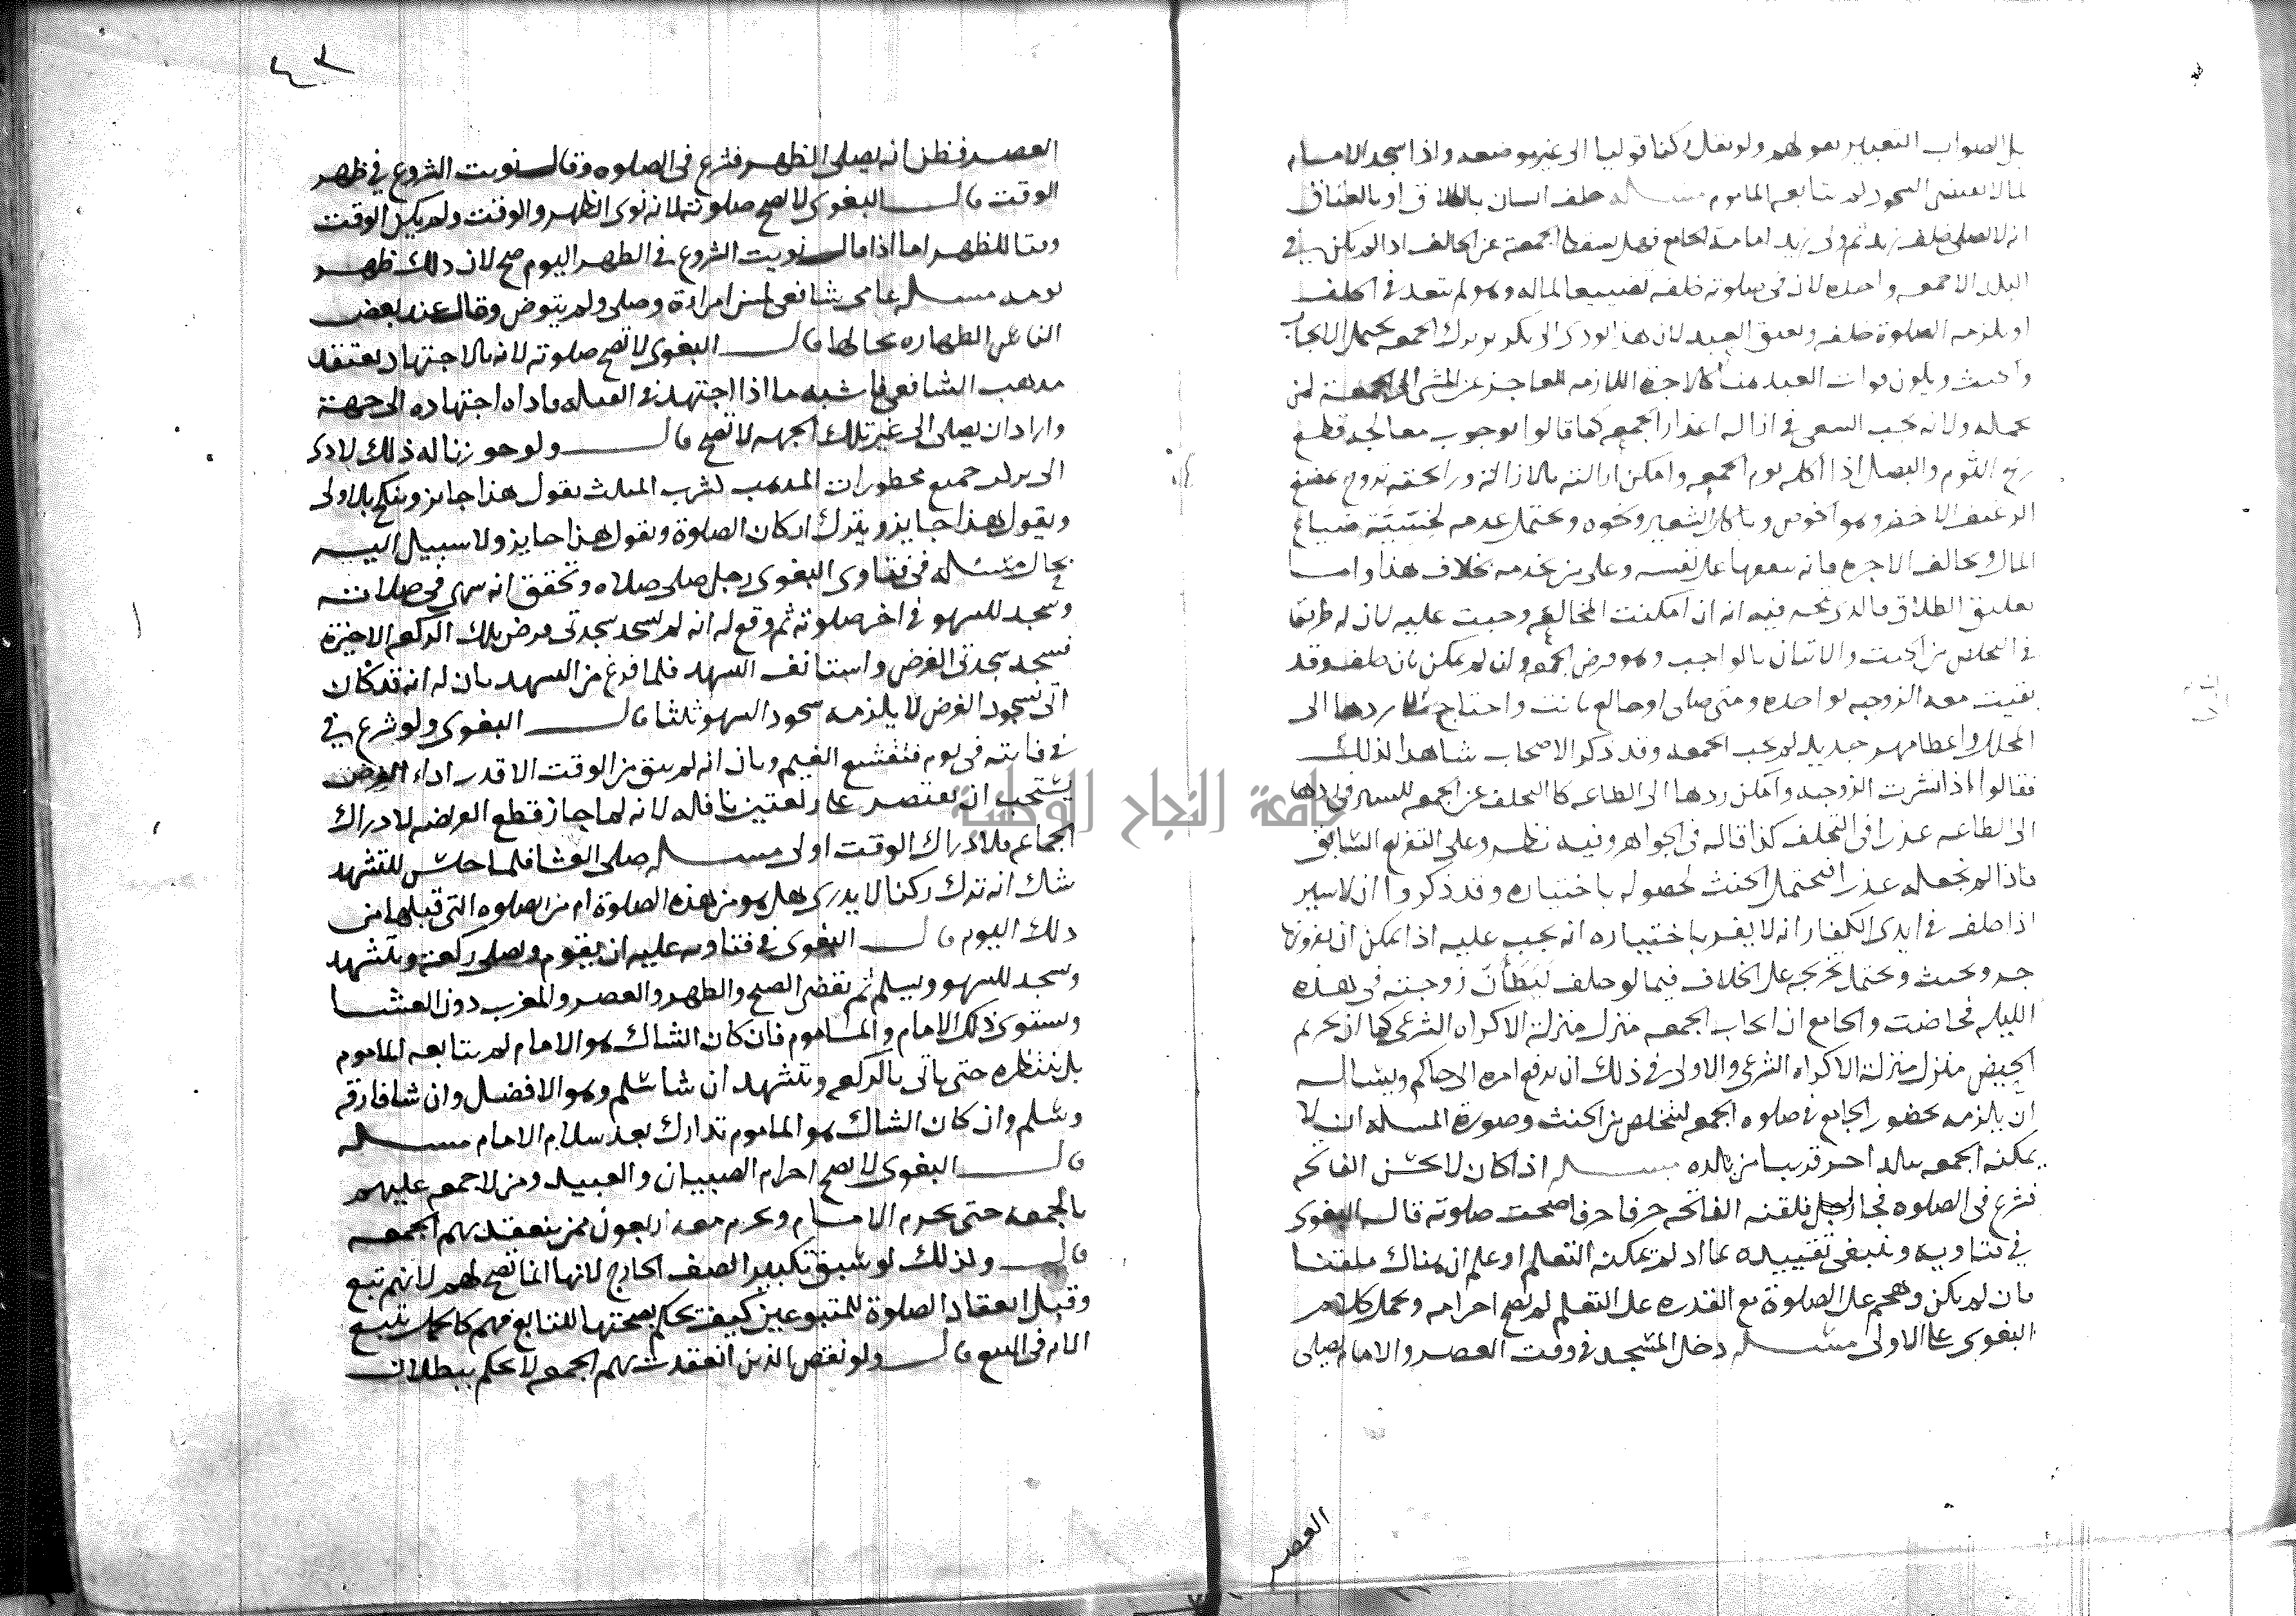 بل الصواب التعبير بقولهم ولو نقل ركنا قوليا الى غير موضعه واذا سجد الامام
لما لا يقتضى السجود لم يتابعه الماموم مسـله حلف انسان بالطلاق او بالعتاق
انه لا يصلى خلف زيد ثم ولى زيد امامة الجامع فهل يسقط الجمعة عن الحالف اذا لم يكن في
البلد الا جمعه واحده لان فى صلوته خلفه تضييعا لماله وهو لم يتعد فى الحلف
او يلزمه الصلوة خلفه ويعتق العبد لان هذا يودى الى ترك الجمعه يحتمل الايجاب
والحنث ويكون فوات العبد هنا كالاجرة اللازمه للعاجز عن المشى الى الجمعة لمن
يحمله ولانه يجب السعى فى ازاله اعذار الجمعه كما قالوا بوجوب معالجه قطع
ريح الثوم والبصل اذا اكله يوم الجمعه وامكن ازالته بالازالة ورائحته تزول بمضغ
المال ويخالف الاجره فانه ينفعها على نفسه وعلى من يخدمه بخلاف هذا واما
تعليق الطلاق فالذى نحـه فيه انه ان امكنت المخالعه وجبت عليه لان له طريقا
فى التخلص من الحنث والاتيان بالواجب وهو فرض الجمعه وان لم يمكن بان حلف وقد
بقيت معه الزوجيه لواحده ومتى صلى او خالع بانت واحتاج الى ردها الى
المحلل واعطا مهر جديد لم يجب الجمعه وقد ذكر الاصحاب شاهدا لذلك
فقالوا اذا نشزت الزوجه وامكن ردها الى الطاعه كان التخلف عن الجمعه للسير فى ردها
الى الطاعه عذرا فى التخلف كذا قاله فى الجواهر وفيه نظر وعلى التفريع السابق
فاذا لم نجعله عذرا فيحتمل الحنث لحصوله باختياره وقد ذكروا ان الاسير
اذا حلف فى ايدى الكفار انه لا يفر باختياره انه يجب عليه اذا امكن ان
ويحنث ويحتمل تخريجه على الخلاف فيما لو حلف ليطأن زوجته فى هذه
الليله فحاضت والجامع ان ايجاب الجمعه منزل منزلة الاكراه الشرعى كما ان تحريم
الحيض منزل منزلة الاكراه الشرعى والاولى فى ذلك ان يرفع امره الى حاكم ويساله
ان يلزمه بحضور الجامع فى صلوه الجمعه ليتخلص من الحنث وصورة المسله ان لا
يمكنه الجمعه ببلد اخر قريبا من بلده مسـله اذا كان لا يحسن الفاتحه
فشرع فى الصلوه فجا رجل فلقنه الفاتحه حرفا حرفا صحت صلوته قال البغوى
فى فتاويه وينبغى تقييده بما اذا لم يمكنه التعلم او علم ان هناك ملقنا
فان لم يكن وهجم على الصلوة مع القدره على التعلم لم يصح احرامه ويحمل كلام
البغوى على الاولى مسـله دخل المسجد فى وقت العصر والامام يصلى
العصر
٤٣
العصر فظن انه يصلى الظهر فشرع فى الصلوه وقال نويت الشروع فى ظهر
الوقت قال البغوى لا تصح صلوته لانه نوى الظهر والوقت ولم يكن الوقت
وقتا للظهر اما اذا قال نويت الشروع فى الظهر اليوم صح لان ذلك ظهر
يومه مسـله عامى شافعى لمس امراة وصلى ولم يتوض وقال عند بعض
الناس الطهاره بحالها قال البغوى لا تصح صلوته لانه بالاجتهاد يعتقد
مذهب الشافعى فاشبه ما اذا اجتهد فى القبله فاداه اجتهاده الى جهة
واراد ان يصلى الى غير تلك الجهه لا تصح قال ولو جوزنا له ذلك لادى
الى يرتكب جميع محظورات المذهب لشرب المثلث يقول هذا جايز وينكح بلا ولى
ويقول هذا جايز ويترك اركان الصلوة ويقول هذا جايز ولا سبيل اليه
بحال مسـله فى فتاوى البغوى رجل صلى صلاه وتحقق انه سهى فى صلاته
وسجد للسهو فى اخر صلوته ثم وقع له انه لم يسجد سجدتى فرض تلك الركعه الاخيرة
فسجد سجدتى الفرض واستانف التشهد فلما فرغ من التشهد بان له انه قد كان
اتى بسجود الفرض لا يلزمه سجود السهو ثلثا قال البغوى ولو شرع فى
فى فايته فى يوم فتقشع الغيم وبان انه لم يبق من الوقت الا قدر اداء الفرض
يستحب ان يقتصر على ركعتين نافله لانه لما جاز قطع الفريضه لادراك
الجماعه فلادراك الوقت اولى مسـله صلى العشا فلما جلس للتشهد
شك انه ترك ركنا لا يدرى هل هو من هذه الصلوة ام من الصلوه التى قبلها من
ذلك اليوم قال البغوى فى فتاويه عليه ان يقوم ويصلى ركعة ويتشهد
وسجد للسهو ويسلم ثم يقضى الصبح والظهر والعصر والمغرب دون العشا
ويستوى ذلك الامام والماموم فان كان الشاك هو الامام لم يتابعه الماموم
بل ينتظره حتى ياتى بالركعه ويتشهد ان شا سلم وهو الافضل وان شا فارقه
وسلم وان كان الشاك هو الماموم تدارك بعد سلام الامام مسـله
قال البغوى لا يصح احرام الصبيان والعبيد ومن لا جمعه عليهم
بالجمعه حتى يحرم الامام ويحرم معه اربعون ممن ينعقد بهم الجمعه
قال وكذلك لو سبق تكبير الصف الخارج لانها انما تصح لهم لانهم تبع
وقبل انعقاد الصلوة للمتبوعين كيف تحكم بصحتها للتابع فهم كالحمل يتبع
الام فى البيع قال ولو نقص الذين انعقدت بهم الجمعه لا يحكم ببطلان
جامعة النجاح الوطنية